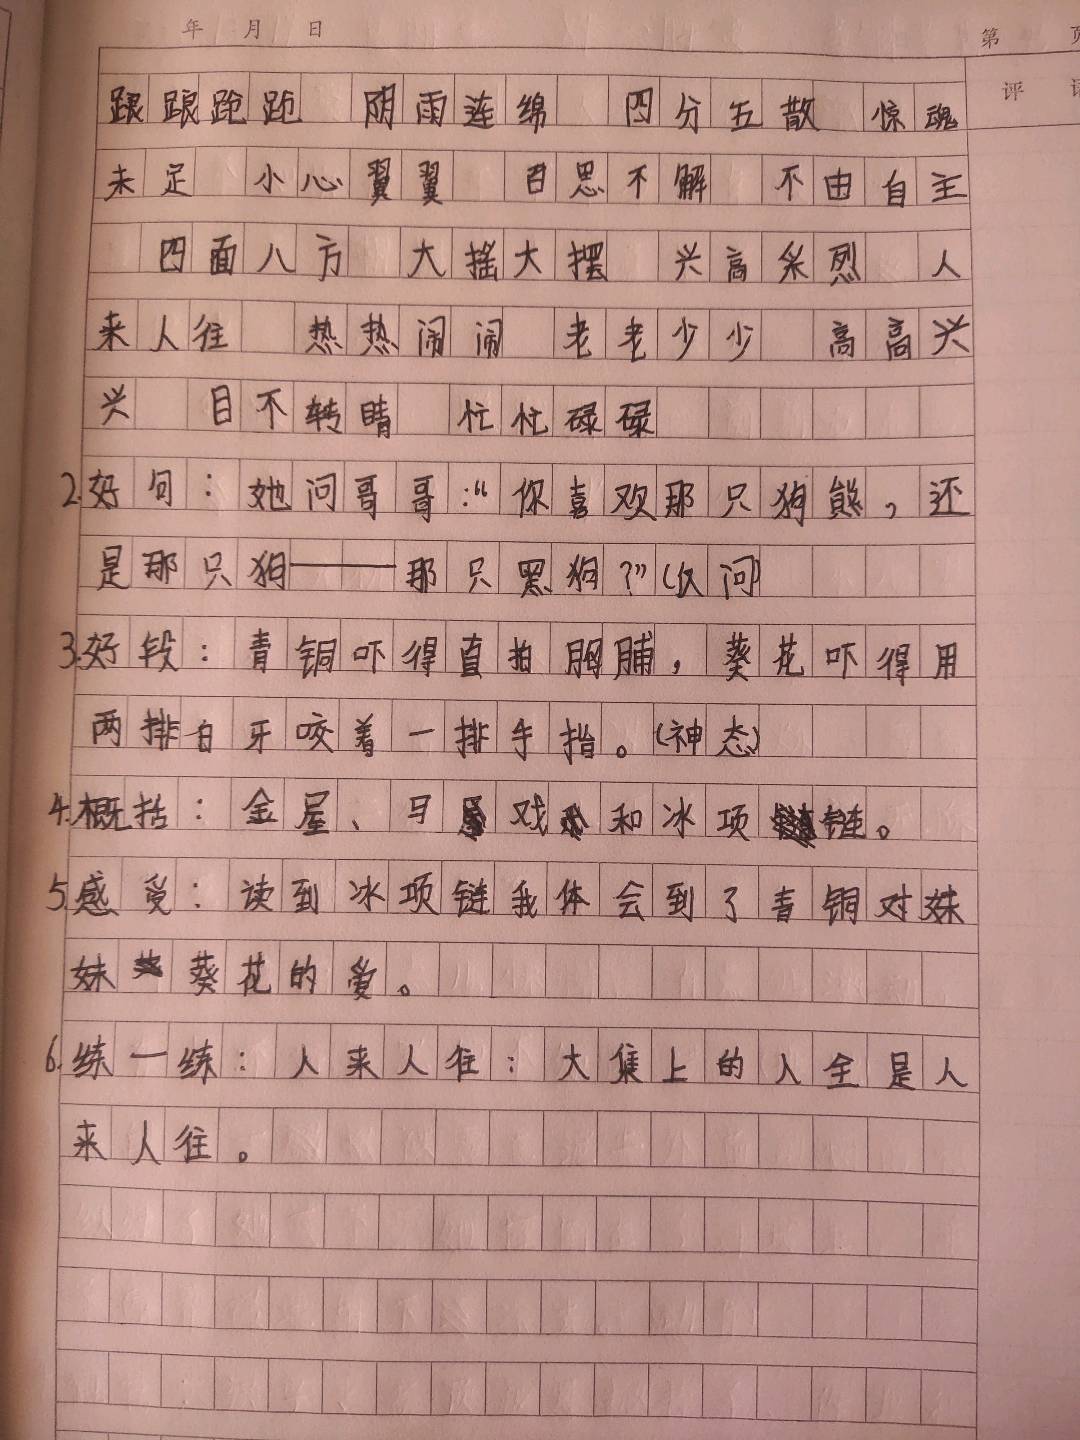 年 月 日
第 页
评 语
踉踉跄跄 阴雨连绵 四分五散 惊魂
未定 小心翼翼 百思不解 不由自主
四面八方 大摇大摆 兴高采烈 人
来人往 热热闹闹 老老少少 高高兴
兴 目不转睛 忙忙碌碌
2.好句：她问哥哥：“你喜欢那只狗熊，还
是那只狗——那只黑狗？”(反问)
3.好段：青铜吓得直拍胸脯，葵花吓得用
两排白牙咬着一排手指。(神态)
4.概括：金屋、马戏和冰项链。
5.感受：读到冰项链我体会到了青铜对妹
妹葵花的爱。
6.练一练：人来人往：大集上的人全是人
来人往。